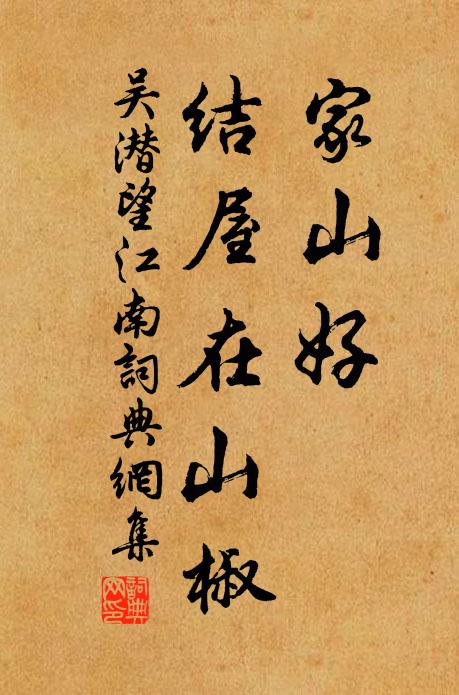 家山好
结屋在山椒
吴潜望江南詞典網集
詞典网印